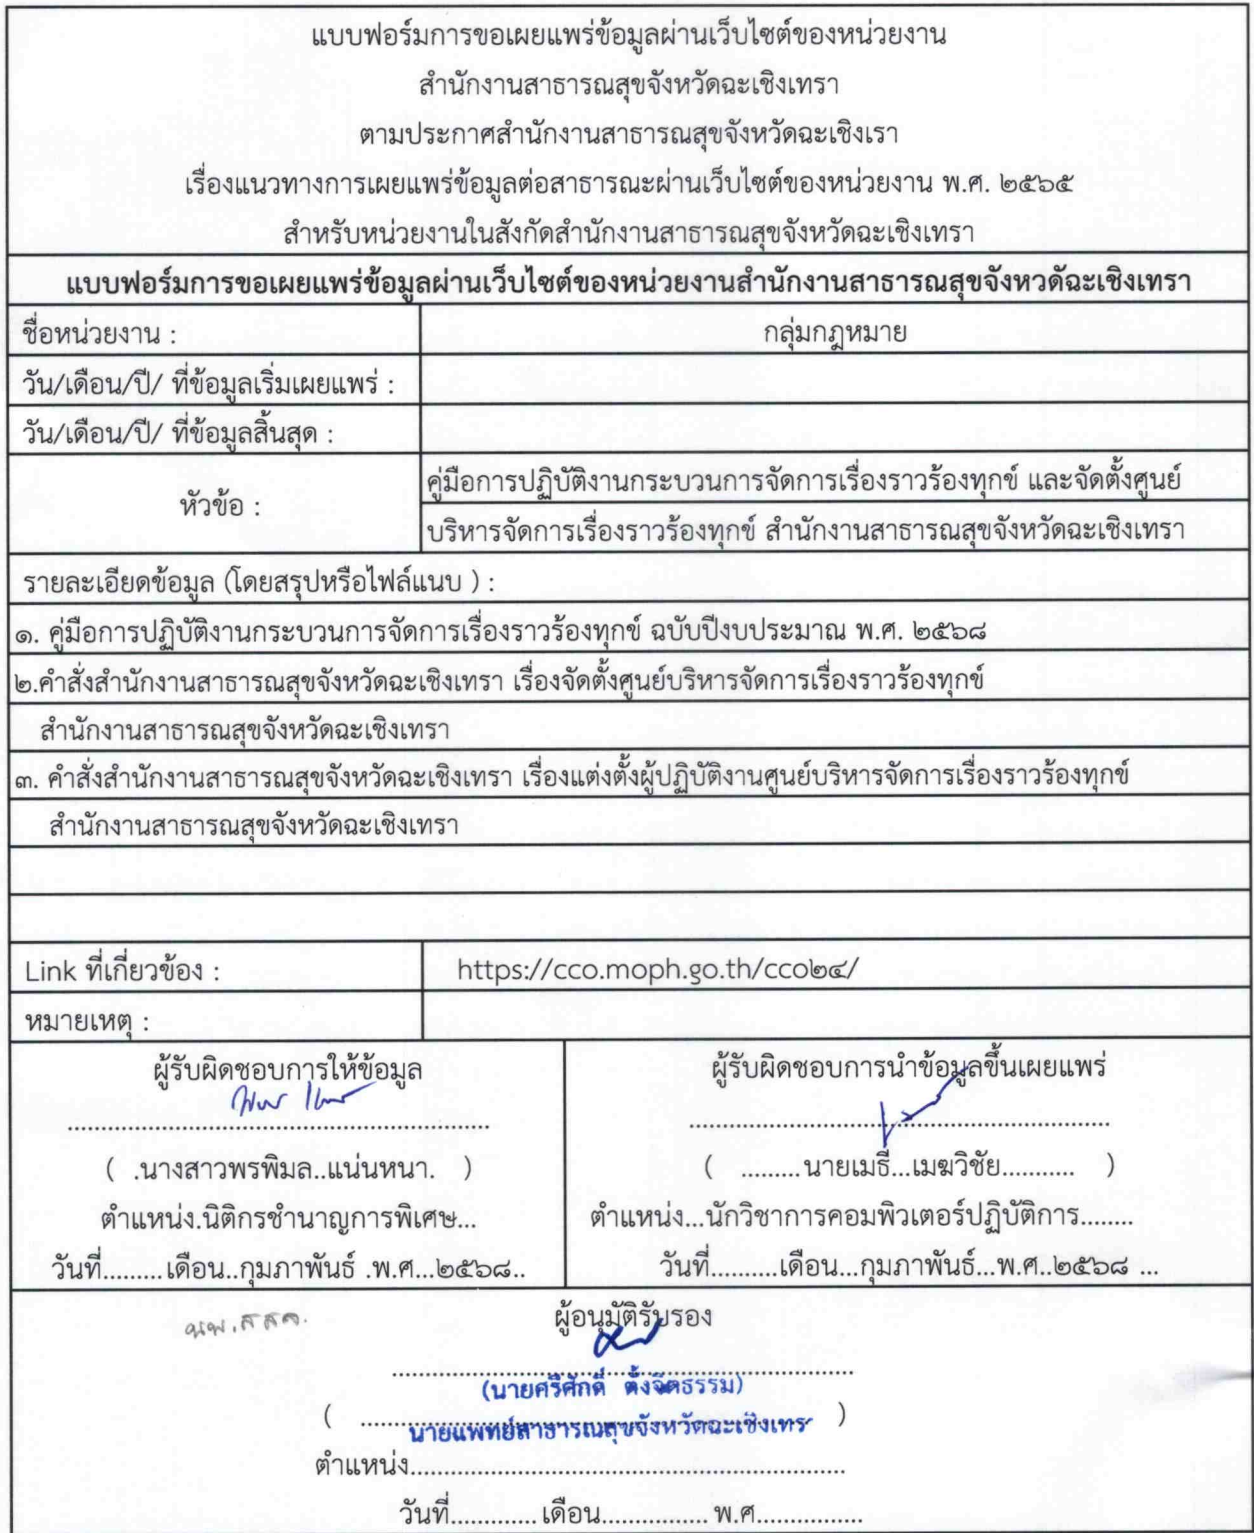 แบบฟอร์มการขอเผยแพร่ข้อมูลผ่านเว็บไซต์ของหน่วยงาน
สำนักงานสาธารณสุขจังหวัดฉะเชิงเทรา
ตามประกาศสำนักงานสาธารณสุขจังหวัดฉะเชิงเรา
เรื่องแนวทางการเผยแพร่ข้อมูลต่อสาธารณะผ่านเว็บไซต์ของหน่วยงาน พ.ศ. ๒๕๖๕
สำหรับหน่วยงานในสังกัดสำนักงานสาธารณสุขจังหวัดฉะเชิงเทรา
แบบฟอร์มการขอเผยแพร่ข้อมูลผ่านเว็บไซต์ของหน่วยงานสำนักงานสาธารณสุขจังหวดัฉะเชิงเทรา
ชื่อหน่วยงาน : กลุ่มกฎหมาย
วัน/เดือน/ปี/ ที่ข้อมูลเริ่มเผยแพร่ :
วัน/เดือน/ปี/ ที่ข้อมูลสิ้นสุด :
หัวข้อ : คู่มือการปฏิบัติงานกระบวนการจัดการเรื่องราวร้องทุกข์ และจัดตั้งศูนย์
บริหารจัดการเรื่องราวร้องทุกข์ สำนักงานสาธารณสุขจังหวัดฉะเชิงเทรา
รายละเอียดข้อมูล (โดยสรุปหรือไฟล์แนบ ) :
๑. คู่มือการปฏิบัติงานกระบวนการจัดการเรื่องราวร้องทุกข์ ฉบับปีงบประมาณ พ.ศ. ๒๕๖๘
๒.คำสั่งสำนักงานสาธารณสุขจังหวัดฉะเชิงเทรา เรื่องจัดตั้งศูนย์บริหารจัดการเรื่องราวร้องทุกข์
สำนักงานสาธารณสุขจังหวัดฉะเชิงเทรา
๓. คำสั่งสำนักงานสาธารณสุขจังหวัดฉะเชิงเทรา เรื่องแต่งตั้งผู้ปฏิบัติงานศูนย์บริหารจัดการเรื่องราวร้องทุกข์
สำนักงานสาธารณสุขจังหวัดฉะเชิงเทรา
Link ที่เกี่ยวข้อง : https://cco.moph.go.th/cco๒๔/
หมายเหตุ :
ผู้รับผิดชอบการให้ข้อมูล
................................................................
( .นางสาวพรพิมล..แน่นหนา. )
ตำแหน่ง.นิติกรชำนาญการพิเศษ...
วันที่.........เดือน..กุมภาพันธ์ .พ.ศ...๒๕๖๘..
ผู้รับผิดชอบการนำข้อมูลขึ้นเผยแพร่
................................................................
( .........นายเมธี...เมฆวิชัย........... )
ตำแหน่ง...นักวิชาการคอมพิวเตอร์ปฏิบัติการ........
วันที่..........เดือน...กุมภาพันธ์...พ.ศ..๒๕๖๘ ...
นพ.สสจ.
ผู้อนุมัติรับรอง
................................................................
(นายศรีศักดิ์ ตั้งจิตธรรม)
( ................................................................ )
นายแพทย์สาธารณสุขจังหวัดฉะเชิงเทร
ตำแหน่ง................................................................
วันที่............. เดือน................ พ.ศ................